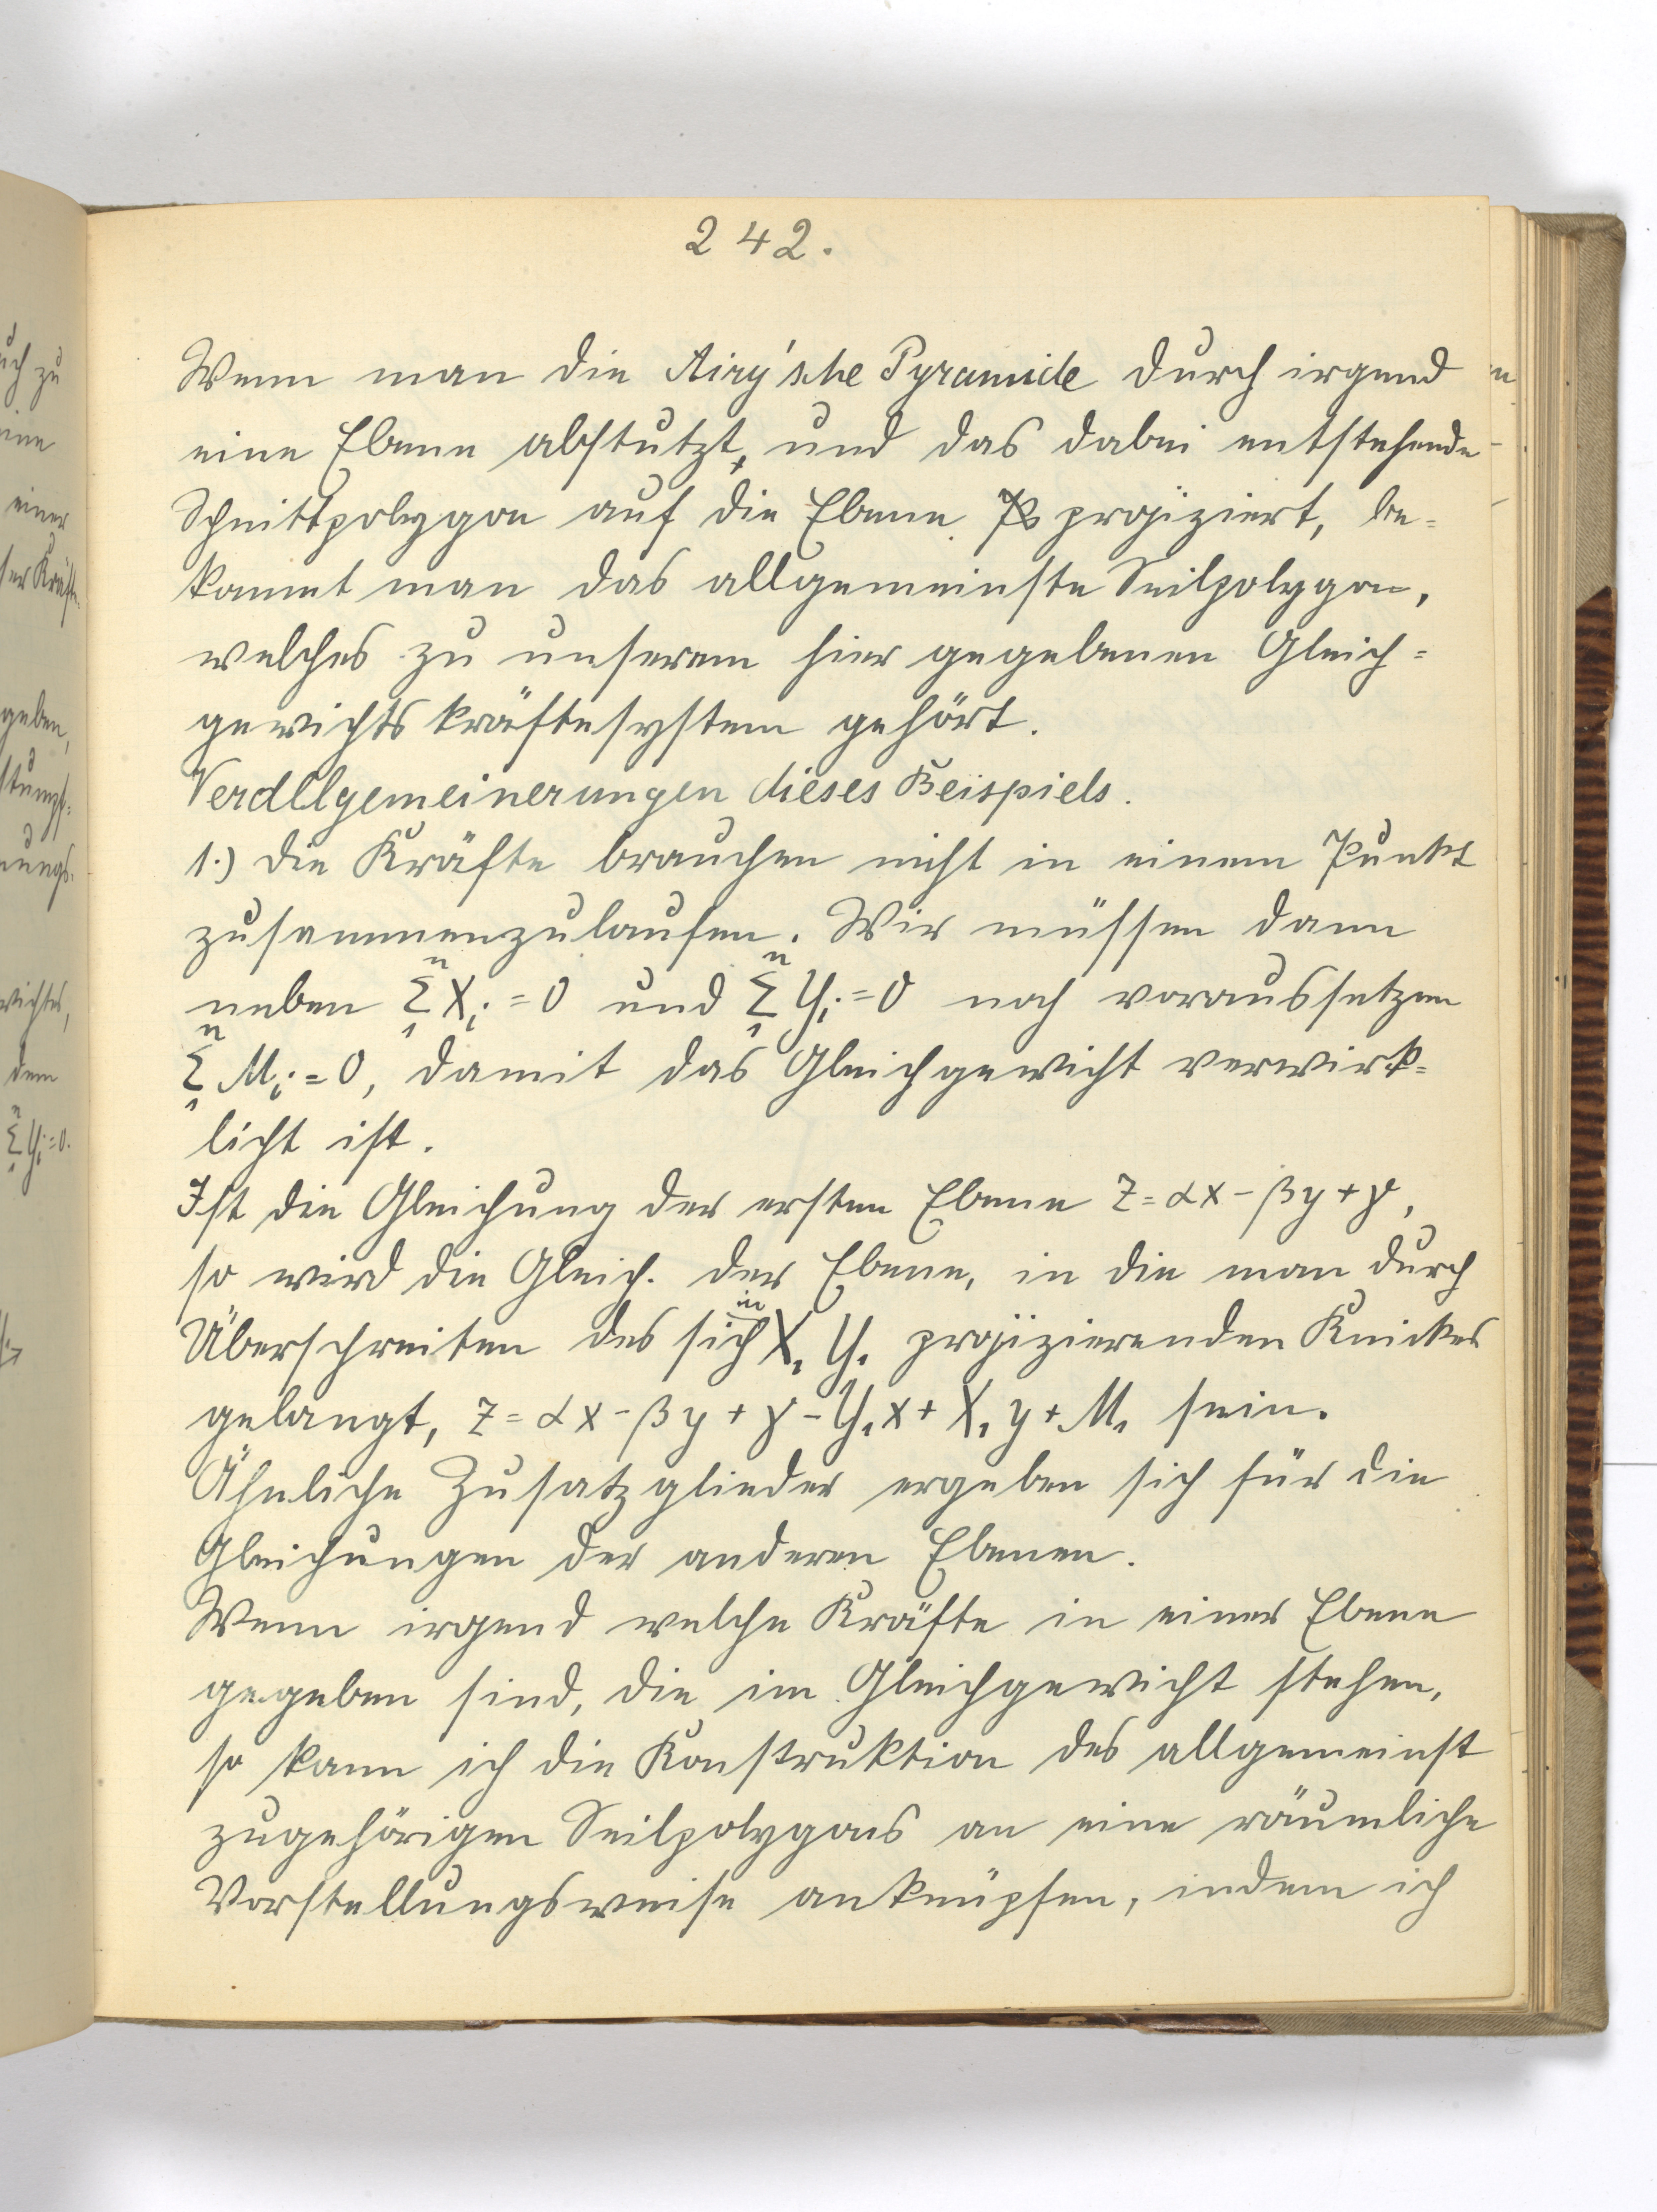 242.
Wenn man die Airy'sche Pyramide durch irgend
eine Ebene abstutzt, und das dabei entstehende
Schnittpolygon auf die Ebene P projiziert, be=
kommt man das allgemeinste Seilpolygon,
welches zu unserem hier gegebenen Gleich=
gewichtskräftesystem gehört.
Verallgemeinerungen dieses Beispiels.
1.) Die Kräfte brauchen nicht in einem Punkt
zusammenzulaufen. Wir müssen dann
neben Σ₁ⁿ Xᵢ = 0 und Σ₁ⁿ Yᵢ = 0 noch voraussetzen
Σ₁ⁿ Mᵢ = 0, damit das Gleichgewicht verwirk=
licht ist.
Ist die Gleichung der ersten Ebene z = αx - βy + γ,
so wird die Gleich. der Ebene, in die man durch
Überschreiten des sich in X₁ Y₁ projizierenden Knickes
gelangt, z = αx - βy + γ - Y₁x + X₁y + M₁ sein.
Ähnliche Zusatzglieder ergeben sich für die
Gleichungen der anderen Ebenen.
Wenn irgend welche Kräfte in einer Ebene
gegeben sind, die im Gleichgewicht stehen,
so kann ich die Konstruktion des allgemeinst
zugehörigen Seilpolygons an eine räumliche
Vorstellungsweise anknüpfen, indem ich